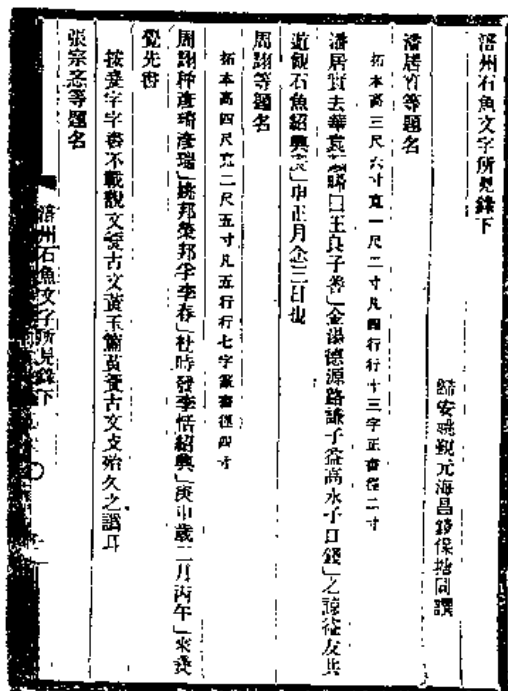 涪州石魚文字所見錄下
歸安姚覲元海昌錢保塘同譔
潘居實等題名
拓本高三尺六寸寬一尺二寸凡四行行十三字正書徑二寸
潘居實去華袁顯晞口王良子善」金湯德源路謙子益高永子口錢」之諒益友共
遊觀石魚紹興庚」申正月念三日也
周詡等題名
拓本高四尺寬二尺五寸凡五行行七字篆書徑四寸
周詡种彥琦彥瑞」姚邦榮邦孚李春」杜時發李恬紹興」庚申歲二月丙午」來
覺先書
按 字字書不載說文 古文黃玉篇 古文支殆久之譌耳
張宗忞等題名
涪州石魚文字所見錄下